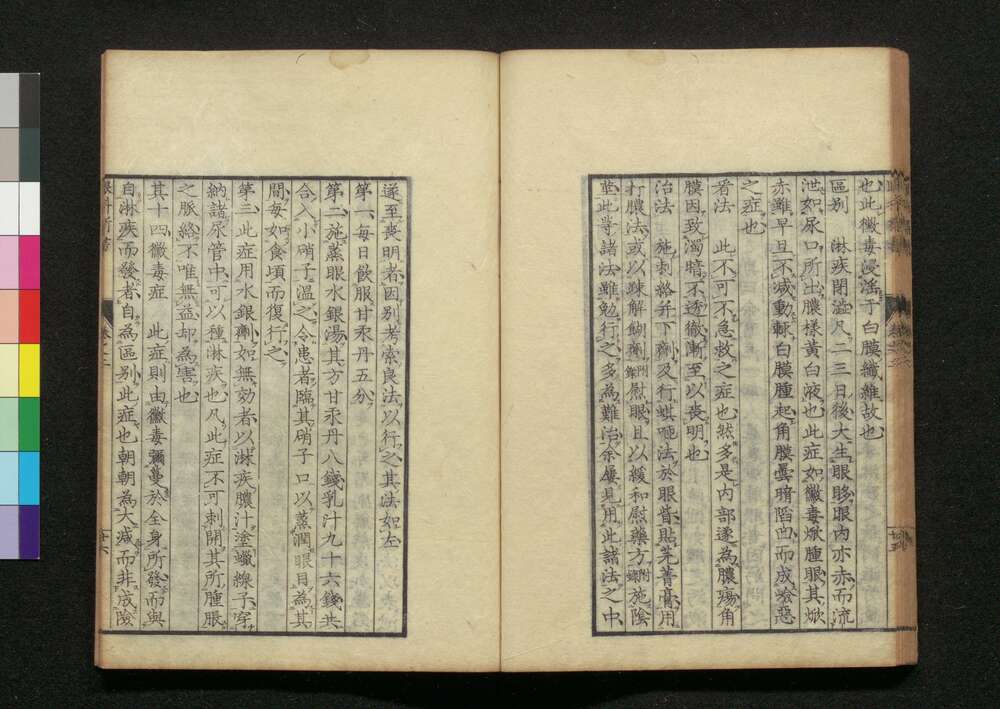 也此黴毒浸淫于白膜纖維故也
區别　淋疾閉澁凡二三日後大生眼眵眼内亦赤而流
泄如尿口所出膿樣黃白液也此症如黴毒焮腫眼其焮
赤雖早旦不減動輙白膜腫起角膜曇暗陷凹而成險惡
之症也
看法　此不可不急救之症也然多是内部遂為膿瘍角
膜因致濁暗不透徹漸至以喪明也
治法　施刺絡并下劑及行蜞咂法於眼眥貼芫菁膏用
打膿法或以疎解劑附錄慰眼且以緩和慰藥方附錄施陰
莖此等諸法雖勉行之多為難治余屢見用此諸法之中
遂至喪明者因别考索良法以行之其法如左
第一每日飲服甘汞丹五分
第二施蒸眼水銀湯其方甘汞丹八錢乳汁九十六錢共
合入小硝子温之令患者臨其硝子口以蒸潤眼目為其
間每如食頃而復行之
第三此症用水銀劑如無効者以淋疾膿汁塗蠟線子穿
納諸尿管中可以種淋疾也凡此症不可刺開其所腫脹
之脈絡不唯無益却為害也
其十四黴毒症　此症則由黴毒彌蔓於全身所發而與
自淋疾而發者自為區别此症也朝朝為大減而非成險
卷之二
廿六